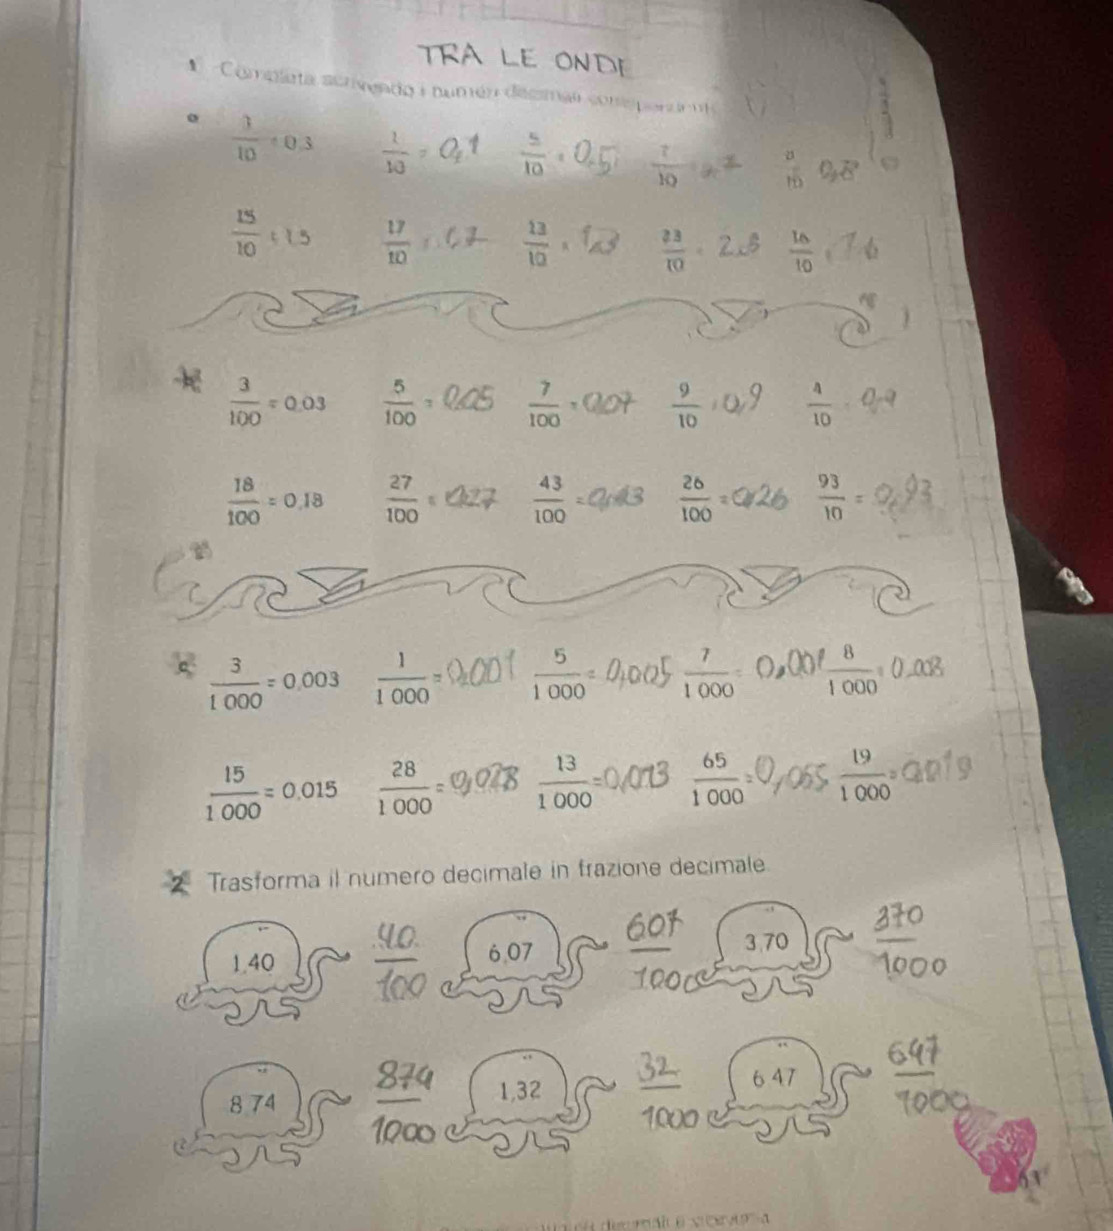 TRA LE ONDE
1 Completa scrivendo i numeri decimali corrispondenti
3/10 = 0,3 1/10 = 0,1 5/10 = 0,5 7/10 = 8/10 0,8
15/10 = 1,5 17/10 = 1,7 13/10 = 1,3 23/10 = 2,3 16/10 = 1,6
b 3/100 = 0,03 5/100 = 0,05 7/100 = 0,07 9/10 = 0,9 4/10 = 0,4
18/100 = 0,18 27/100 = 0,27 43/100 = 0,43 26/100 = 0,26 93/10 = 0,93
c 3/1 000 = 0,003 1/1 000 = 0,001 5/1 000 = 0,005 7/1 000 = 8/1 000 = 0,008
15/1 000 = 0,015 28/1 000 = 0,028 13/1 000 = 0,013 65/1 000 = 19/1 000 = 0,019
2 Trasforma il numero decimale in frazione decimale
1,40 40/100 6,07 607/1000 3,70 370/1000
8,74 874/1000 1,32 32/1000 6,47 647/1000